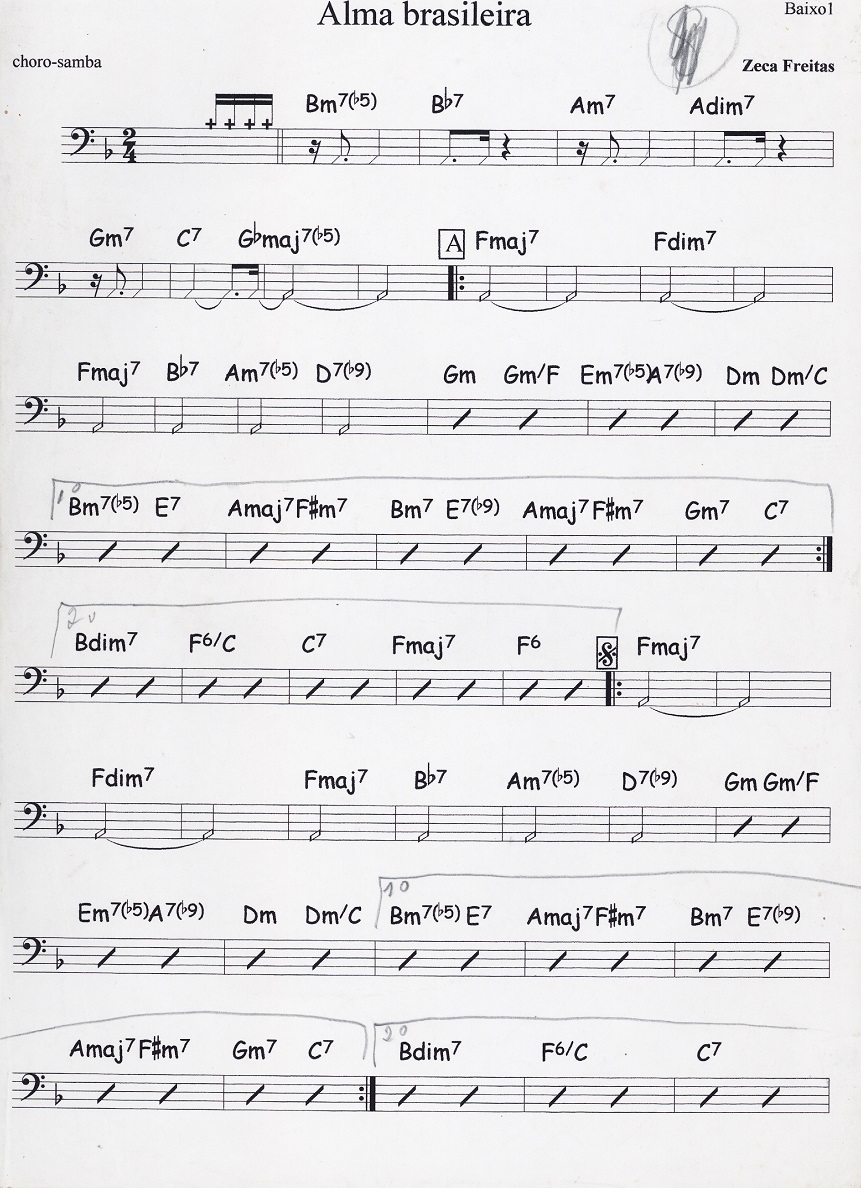 Alma brasileira
Baixo1
choro-samba
Zeca Freitas
Bm7(♭5) B♭7 Am7 Adim7
2
4
Gm7 C7 G♭maj7(♭5) A Fmaj7 Fdim7
Fmaj7 B♭7 Am7(♭5) D7(♭9) Gm Gm/F Em7(♭5) A7(♭9) Dm Dm/C
1º
Bm7(♭5) E7 Amaj7 F♯m7 Bm7 E7(♭9) Amaj7 F♯m7 Gm7 C7
Bdim7 F6/C C7 Fmaj7 F6 Fmaj7
Fdim7 Fmaj7 B♭7 Am7(♭5) D7(♭9) Gm Gm/F
1º
Em7(♭5) A7(♭9) Dm Dm/C Bm7(♭5) E7 Amaj7 F♯m7 Bm7 E7(♭9)
2º
Amaj7 F♯m7 Gm7 C7 Bdim7 F6/C C7